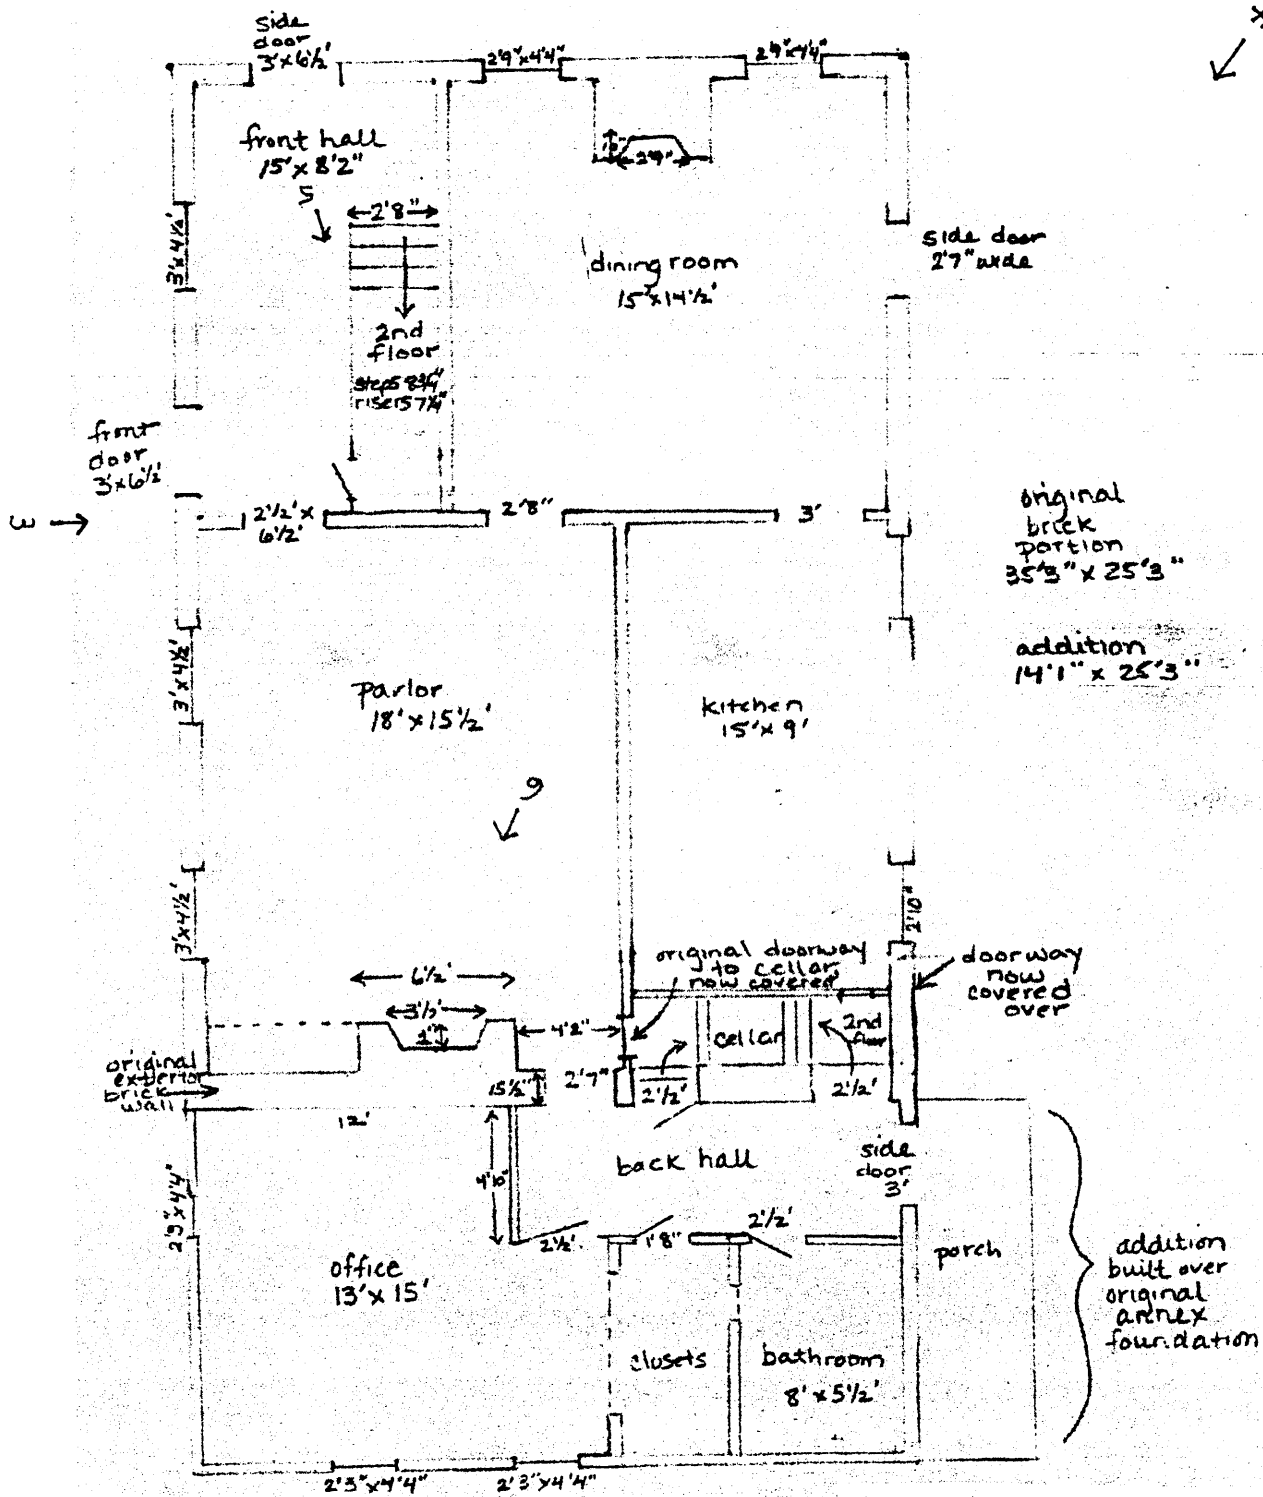 side
door
3'x6½'
2'9"x4'4"
2'9"x4'4"
front hall
15'x8'2"
5
2'9"
2'8"
3'x4½'
dining room
15'x14½'
side door
2'7" wide
2nd
floor
steps 8¾"
risers 7¼"
front
door
3'x6½'
3
2½'x
6½'
2'8"
3'
original
brick
portion
35'3" x 25'3"
addition
14'1" x 25'3"
3'x4½'
parlor
18'x15½'
kitchen
15'x9'
9
3'x4½'
2'10"
original doorway
to cellar,
now covered
doorway
now
covered
over
6½'
3½'
4'2"
cellar
2nd
floor
original
exterior
brick
wall
15½"
2'7"
2½'
2½'
12'
4'10"
back hall
side
door
3'
2'9"x4'4"
2½'
1'8"
2½'
office
13'x15'
porch
addition
built over
original
annex
foundation
closets
bathroom
8'x5½'
2'3"x4'4"
2'3"x4'4"